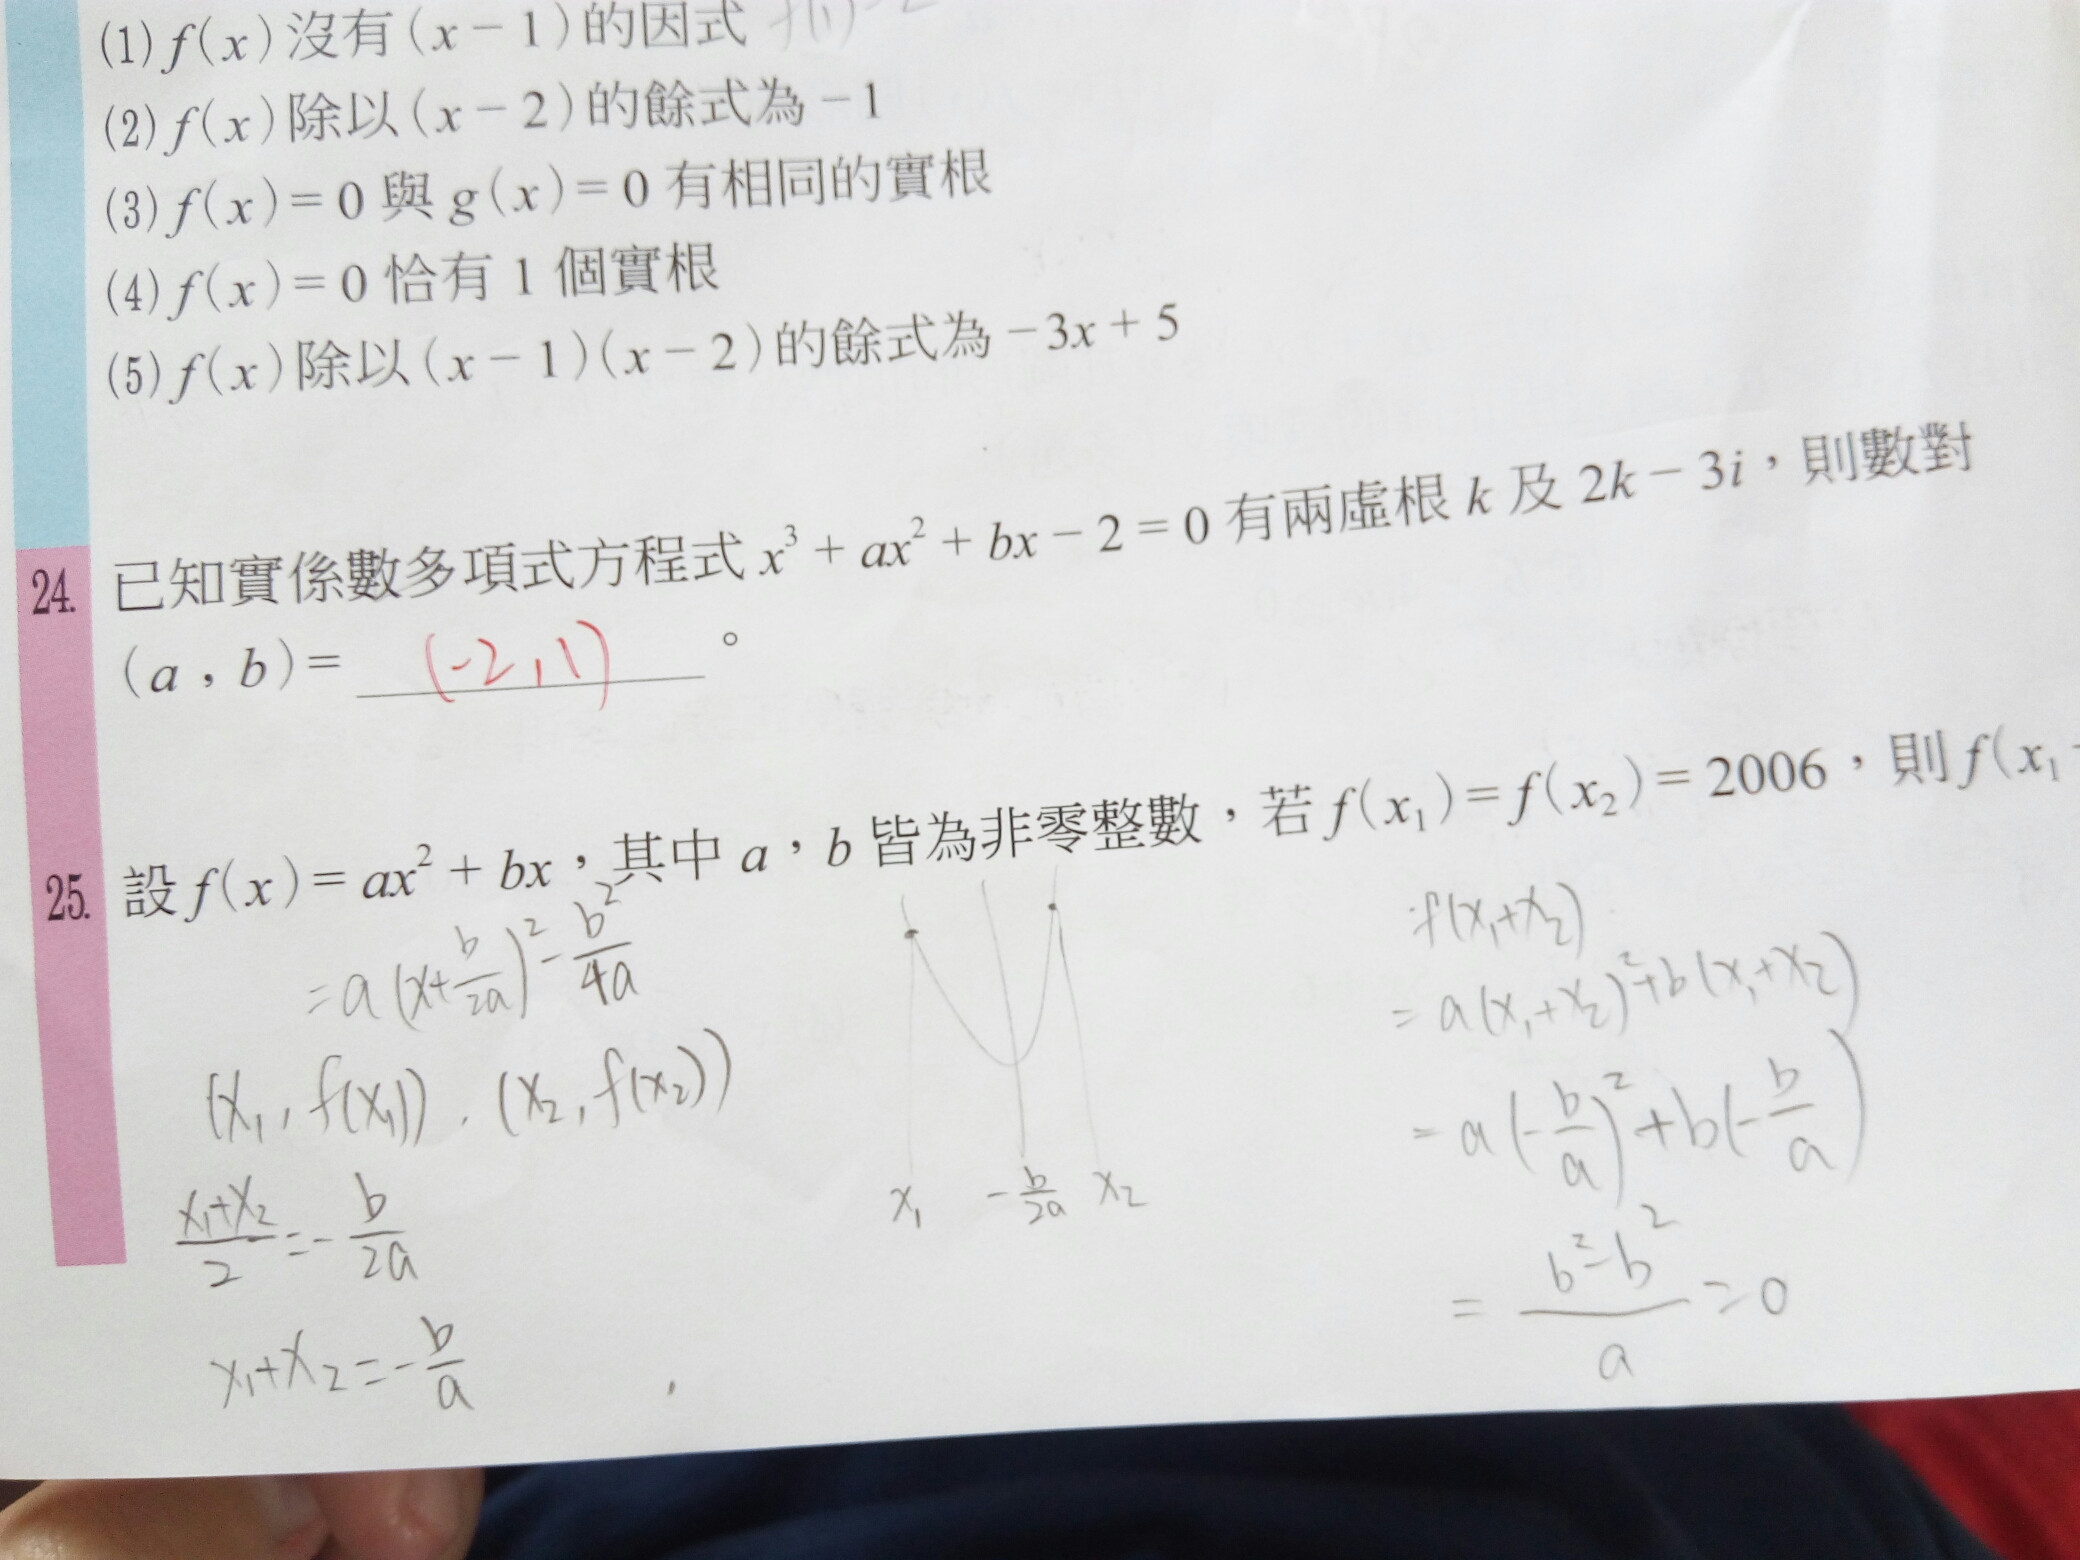 (1) f(x) 沒有 (x－1) 的因式
(2) f(x) 除以 (x－2) 的餘式為 －1
(3) f(x)＝0 與 g(x)＝0 有相同的實根
(4) f(x)＝0 恰有 1 個實根
(5) f(x) 除以 (x－1)(x－2) 的餘式為 －3x＋5
24. 已知實係數多項式方程式 x³＋ax²＋bx－2＝0 有兩虛根 k 及 2k－3i，則數對
(a，b)＝ (-2,1) 。
25. 設 f(x)＝ax²＋bx，其中 a，b 皆為非零整數，若 f(x₁)＝f(x₂)＝2006，則 f(x₁
=a(x+b/2a)²-b²/4a
(x₁, f(x₁)). (x₂, f(x₂))
(x₁+x₂)/2=-b/2a
x₁+x₂=-b/a
x₁ -b/2a x₂
f(x₁+x₂)
=a(x₁+x₂)²+b(x₁+x₂)
=a(-b/a)²+b(-b/a)
=(b²-b²)/a=0